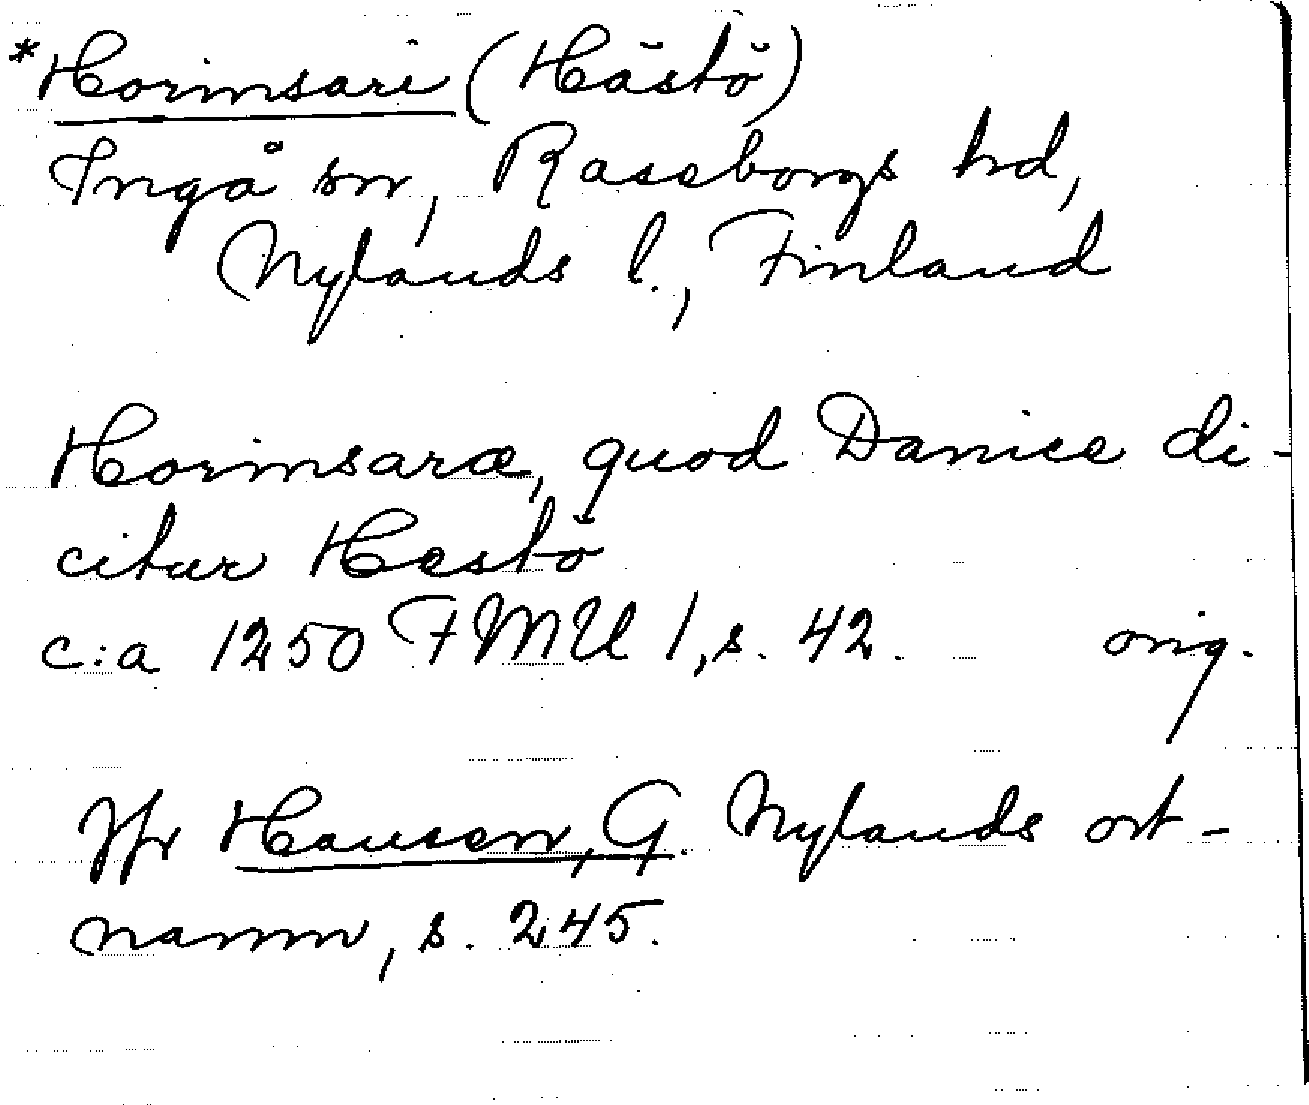 *Horimsari (Hästö)
Ingå sn, Raseborgs hd,
Nylands l., Finland
Horimsaræ, quod Danice di-
citur Hestö
c:a 1250 FMU 1, s. 42. orig.
Jfr Hausen, G. Nylands ort-
namn, s. 245.